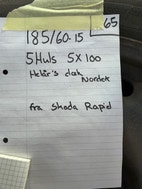 65
185/60-15
5Huls 5x100
Helår's dæk
Nordek
fra Skoda Rapid